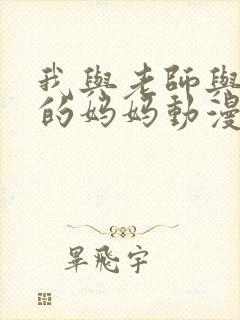 我與老師與
的妈妈動漫
畢飛宇